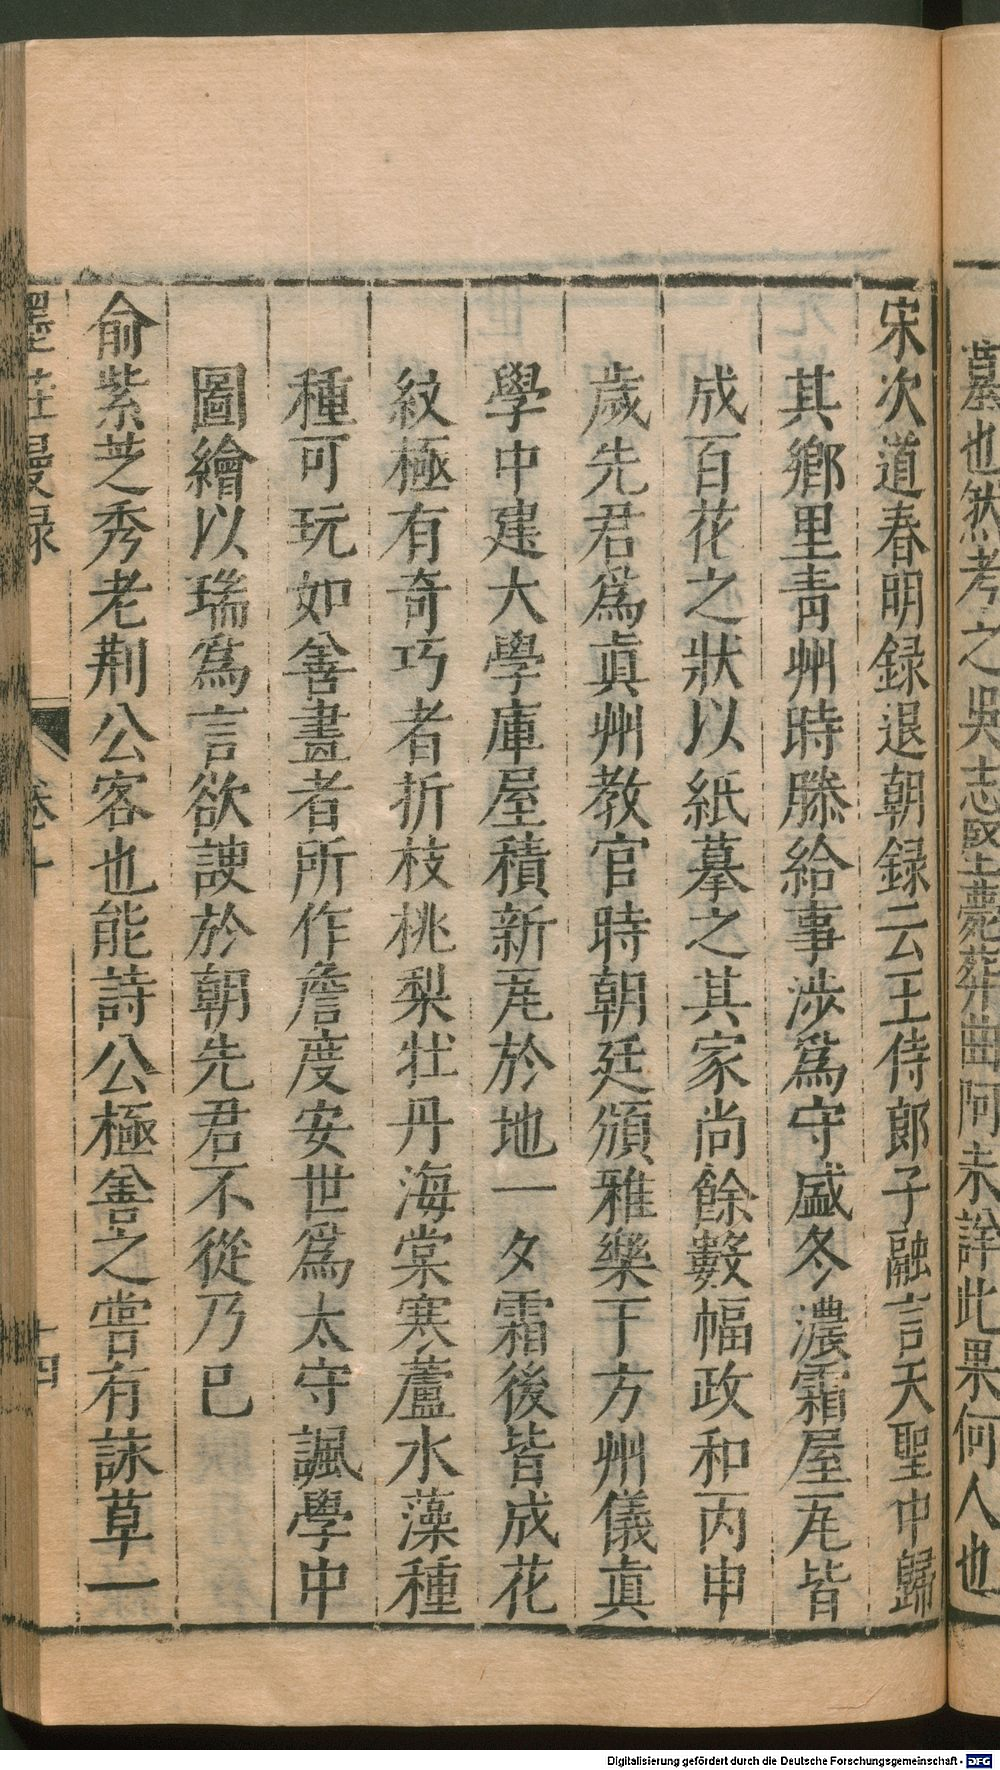 墓也然考之吳志堅薨葬曲阿未詳此果何人也
宋次道春明録退朝録云王侍郎子融言天聖中歸
其鄉里青州時滕給事涉爲守盛冬濃霜屋瓦皆
成百花之狀以紙摹之其家尚餘數幅政和丙申
歲先君爲眞州教官時朝廷頒雅樂于方州儀眞
學中建大學庫屋積新瓦於地一夕霜後皆成花
紋極有奇巧者折枝桃梨牡丹海棠寒蘆水藻種
種可玩如善畫者所作詹度安世爲太守諷學中
圖繪以瑞爲言欲諛於朝先君不從乃已
俞紫芝秀老荆公客也能詩公極善之嘗有詠草一
墨莊漫録 卷十 十四
Digitalisierung gefördert durch die Deutsche Forschungsgemeinschaft - DFG